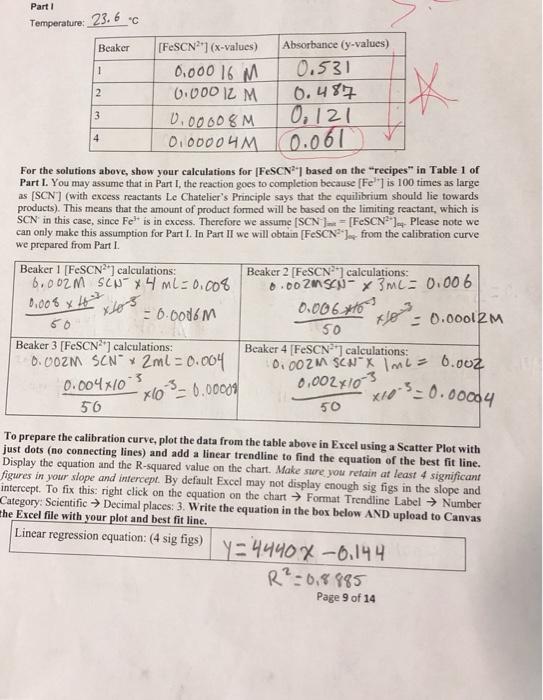 Part I
Temperature: 23.6 °C
Beaker [FeSCN²⁺] (x-values) Absorbance (y-values)
1 0.000 16 M 0.531
2 0.000 12 M 0.487
3 0.00008 M 0.121
4 0.00004M 0.061
For the solutions above, show your calculations for [FeSCN²⁺] based on the "recipes" in Table 1 of
Part I. You may assume that in Part I, the reaction goes to completion because [Fe³⁺] is 100 times as large
as [SCN⁻] (with excess reactants Le Chatelier's Principle says that the equilibrium should lie towards
products). This means that the amount of product formed will be based on the limiting reactant, which is
SCN⁻ in this case, since Fe³⁺ is in excess. Therefore we assume [SCN⁻] = [FeSCN²⁺]eq. Please note we
can only make this assumption for Part I. In Part II we will obtain [FeSCN²⁺]eq from the calibration curve
we prepared from Part I.
Beaker 1 [FeSCN²⁺] calculations:
0.002M SCN⁻ x 4 mL = 0.008
0.008 x 10⁻³
50
x10⁻³ = 0.00016M
Beaker 2 [FeSCN²⁺] calculations:
0.002M SCN⁻ x 3mL = 0.006
0.006 x10⁻³
50
x10⁻³ = 0.00012M
Beaker 3 [FeSCN²⁺] calculations:
0.002M SCN⁻ x 2mL = 0.004
0.004x10⁻³
50
x10⁻³ = 0.00008
Beaker 4 [FeSCN²⁺] calculations:
0.002M SCN⁻ x 1mL = 0.002
0.002x10⁻³
50
x10⁻³ = 0.00004
To prepare the calibration curve, plot the data from the table above in Excel using a Scatter Plot with
just dots (no connecting lines) and add a linear trendline to find the equation of the best fit line.
Display the equation and the R-squared value on the chart. Make sure you retain at least 4 significant
figures in your slope and intercept. By default Excel may not display enough sig figs in the slope and
intercept. To fix this: right click on the equation on the chart → Format Trendline Label → Number
Category: Scientific → Decimal places: 3. Write the equation in the box below AND upload to Canvas
the Excel file with your plot and best fit line.
Linear regression equation: (4 sig figs) y = 4440x - 0.144
R² = 0.8885
Page 9 of 14